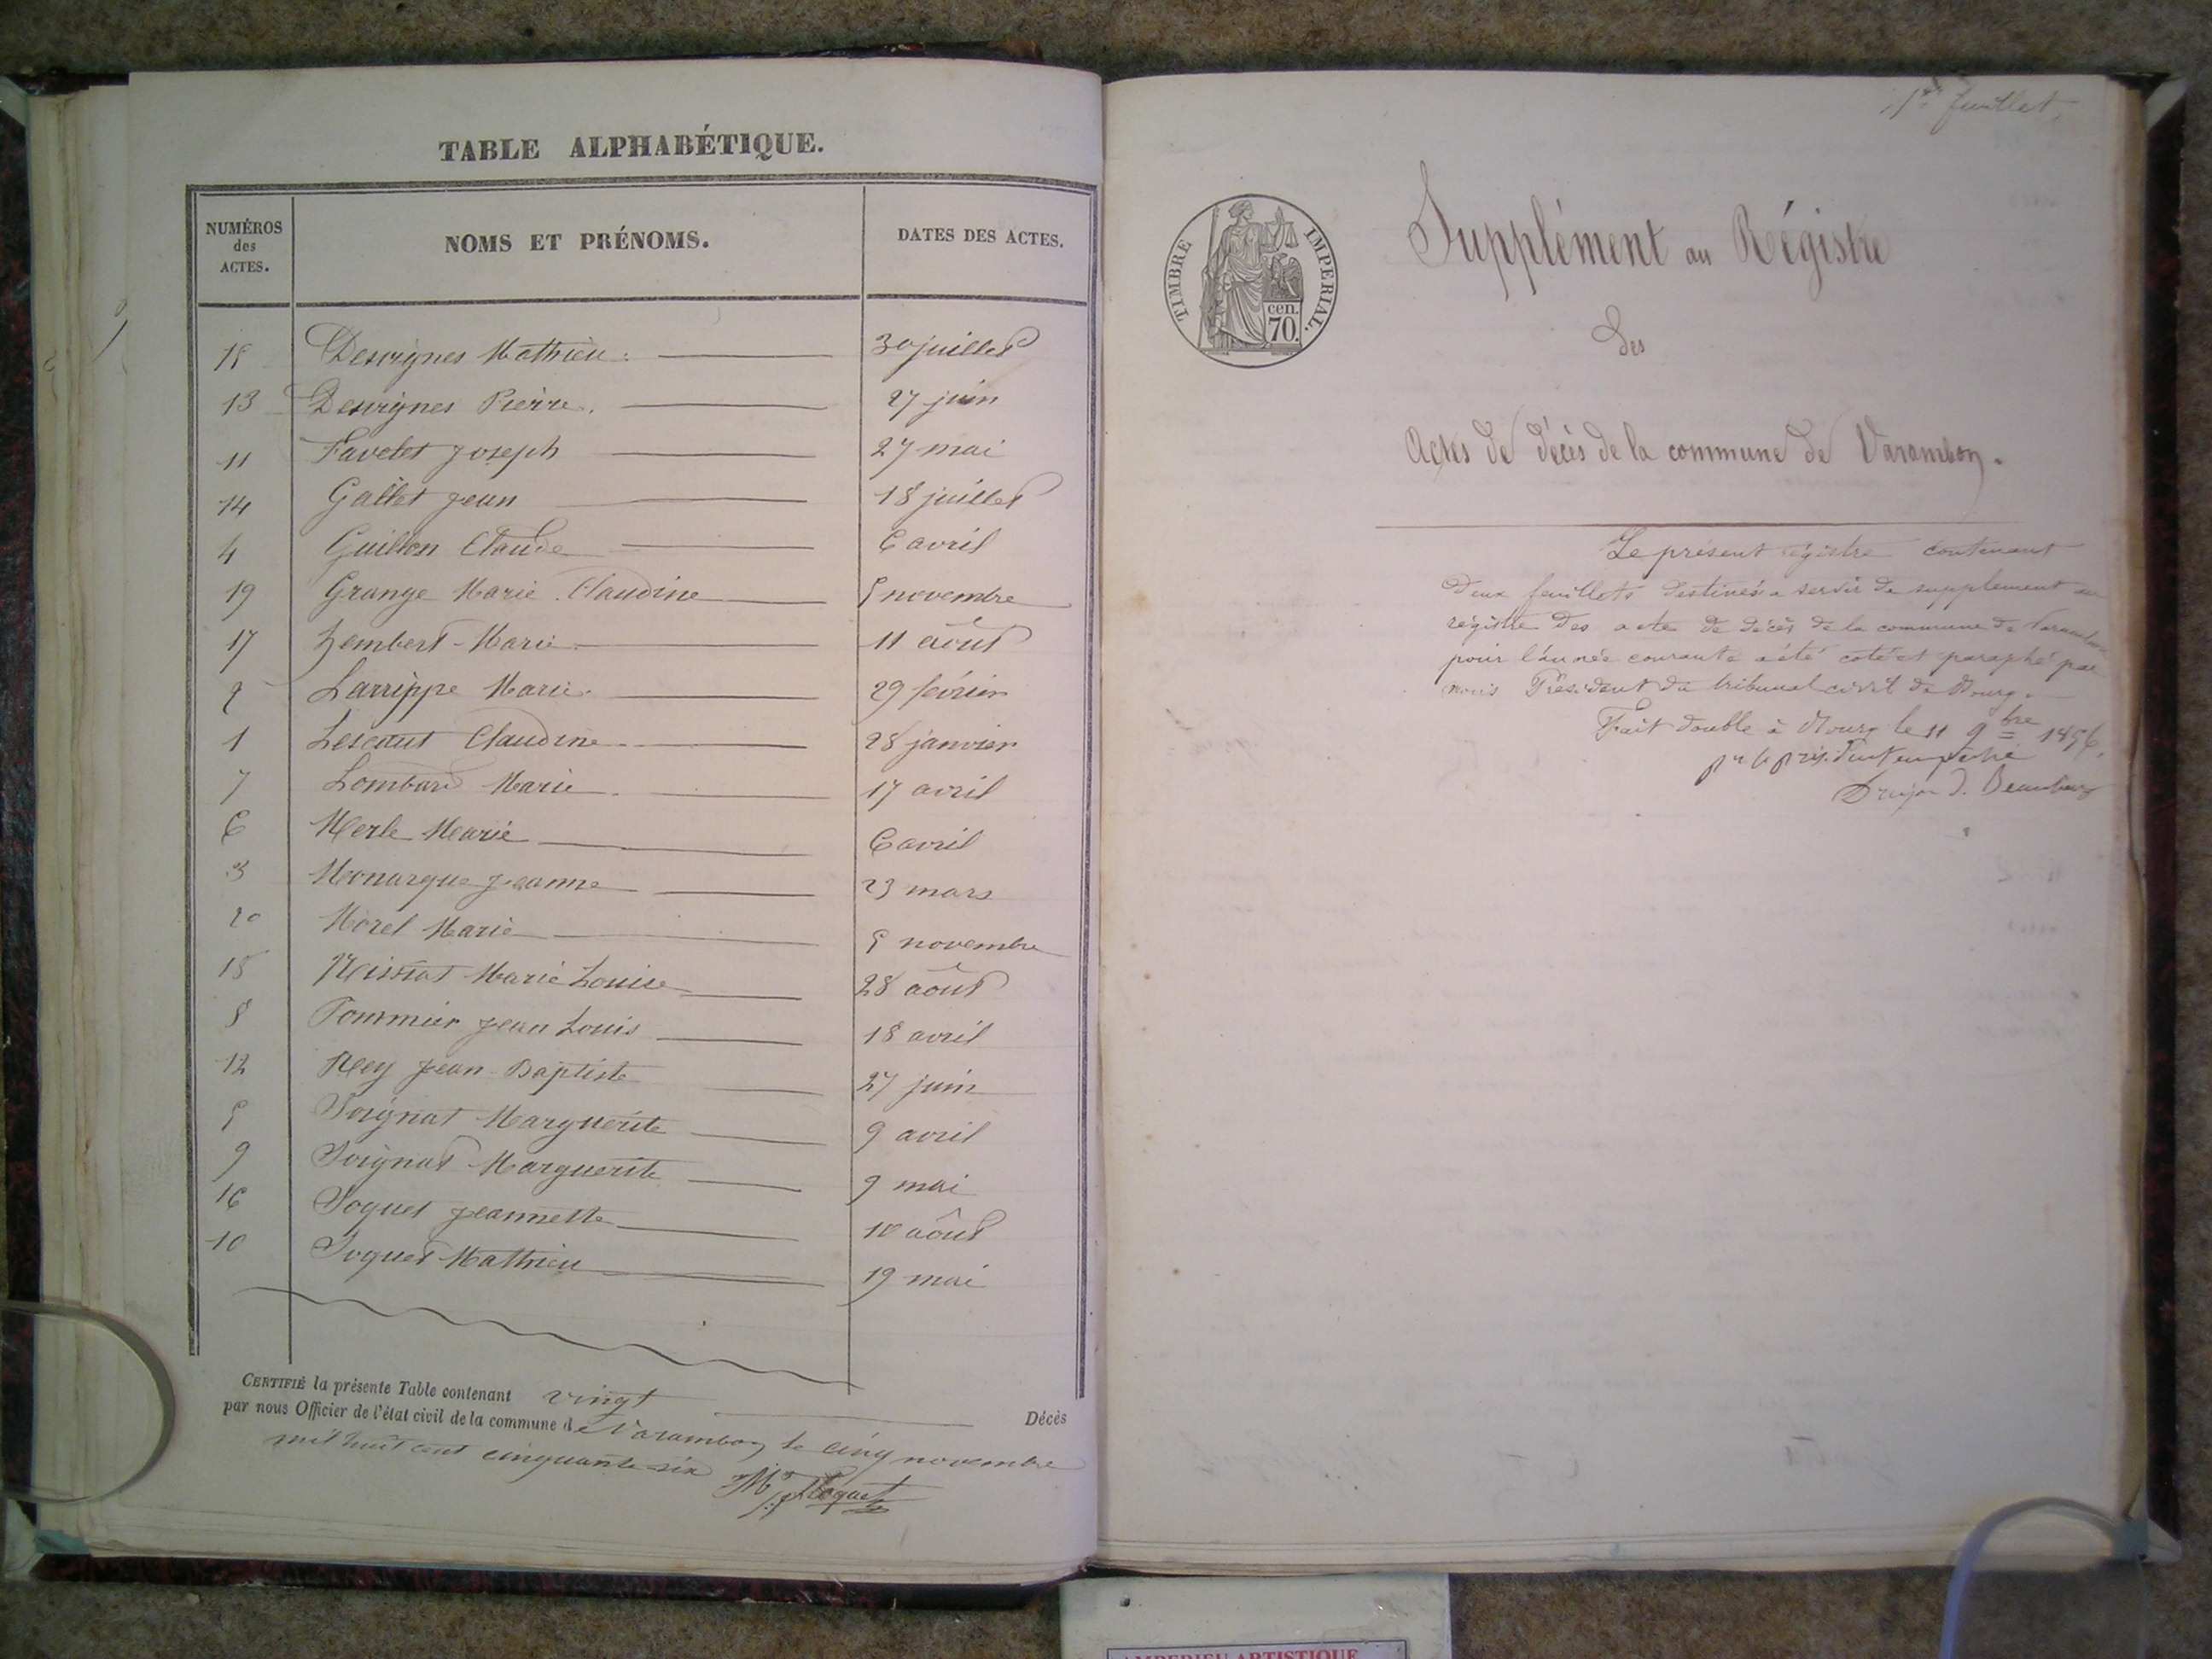 TABLE ALPHABÉTIQUE.
NUMÉROS des ACTES. NOMS ET PRÉNOMS. DATES DES ACTES.
Desvignes Mathieu. 30 juillet
13 Desvignes Pierre. 27 juin
11 Favelet Joseph 27 mai
14 Gallet Jean 18 juillet
4 Guillon Claude 6 avril
19 Grange Marie Claudine 5 novembre
17 Lembert Marie. 11 août
2 Larrippe Marie. 29 février
1 Lescaut Claudine 28 janvier
7 Lombard Marie. 17 avril
6 Merle Marie 6 avril
3 Monarque Jeanne 23 mars
20 Morel Marie 5 novembre
Marie Louise 28 août
8 Pommier Jean Louis 18 avril
12 Rey Jean Baptiste 27 juin
5 Soignat Marguerite 9 avril
9 Soignat Marguerite 9 mai
16 Soquet Jeannette 10 août
10 Soquet Mathieu 19 mai
CERTIFIÉ la présente Table contenant vingt Décès
par nous Officier de l'état civil de la commune de Varambon le cinq novembre
mil huit cent cinquante six
1er feuillet.
TIMBRE IMPERIAL.
cen.
70.
Supplément au Régistre
des
Actes de décès de la commune de Varambon.
Le présent régistre contenant
deux feuillets destinés a servir de supplement au
régistre des acte de décès de la commune de Varambon
pour l'année courante a été coté et paraphé par
nous Président du tribunal civil de Bourg.
Fait double à Bourg le 11 9bre 1856.
pr le président empêché
AMBERIEU ARTISTIQUE